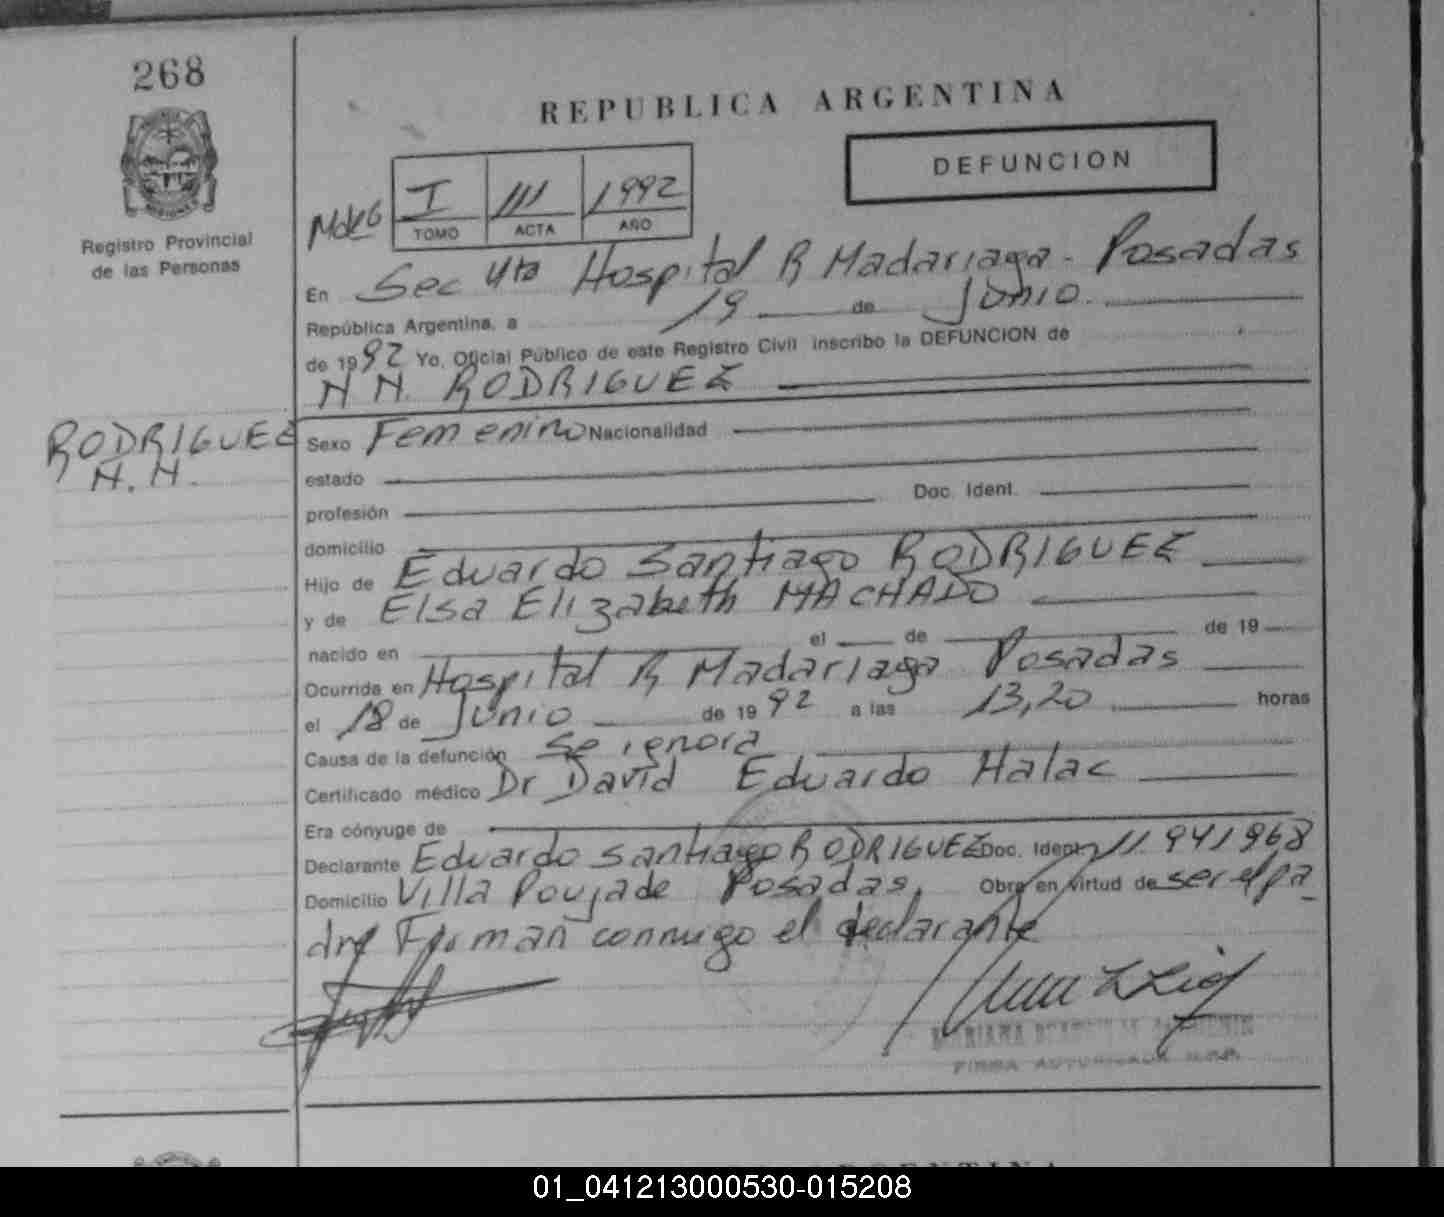 268
REPUBLICA ARGENTINA
DEFUNCION
Registro Provincial
de las Personas
I III 1992
TOMO ACTA AÑO
En Sec 4ta Hospital R Madariaga - Posadas
República Argentina, a 19 de Junio
de 1992 Yo, Oficial Público de este Registro Civil inscribo la DEFUNCION de
N N. RODRIGUEZ
RODRIGUEZ
N. N.
Sexo Femenino Nacionalidad
estado
profesión Doc. Ident.
domicilio
Hijo de Eduardo Santiago RODRIGUEZ
y de Elsa Elizabeth MACHADO
nacido en el de de 19
Ocurrida en Hospital R Madariaga Posadas
el 18 de Junio de 1992 a las 13,20 horas
Causa de la defunción Se ignora
Certificado médico Dr David Eduardo Halac
Era cónyuge de
Declarante Eduardo Santiago RODRIGUEZ Doc. Ident. 11.941968
Domicilio Villa Poujade Posadas, Obra en virtud de ser el pa
dre Firman conmigo el declarante
FIRMA AUTORIZADA
ARGENTINA
01_041213000530-015208